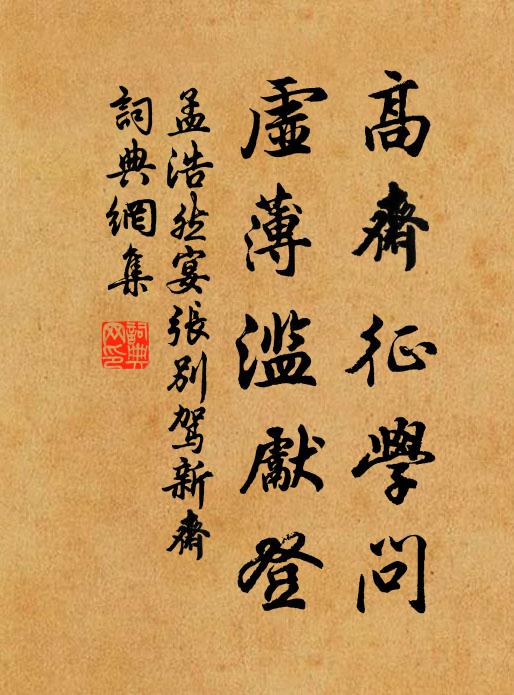 高齋征學問
虛薄濫獻登
孟浩然宴張別駕新齋
詞典網集
詞典网印